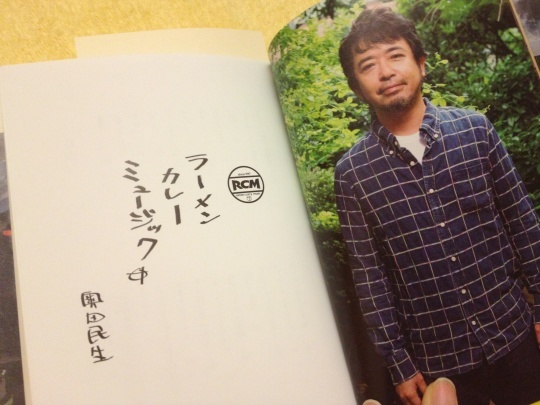 RCM
ラーメン
カレー
ミュージック
奥田民生